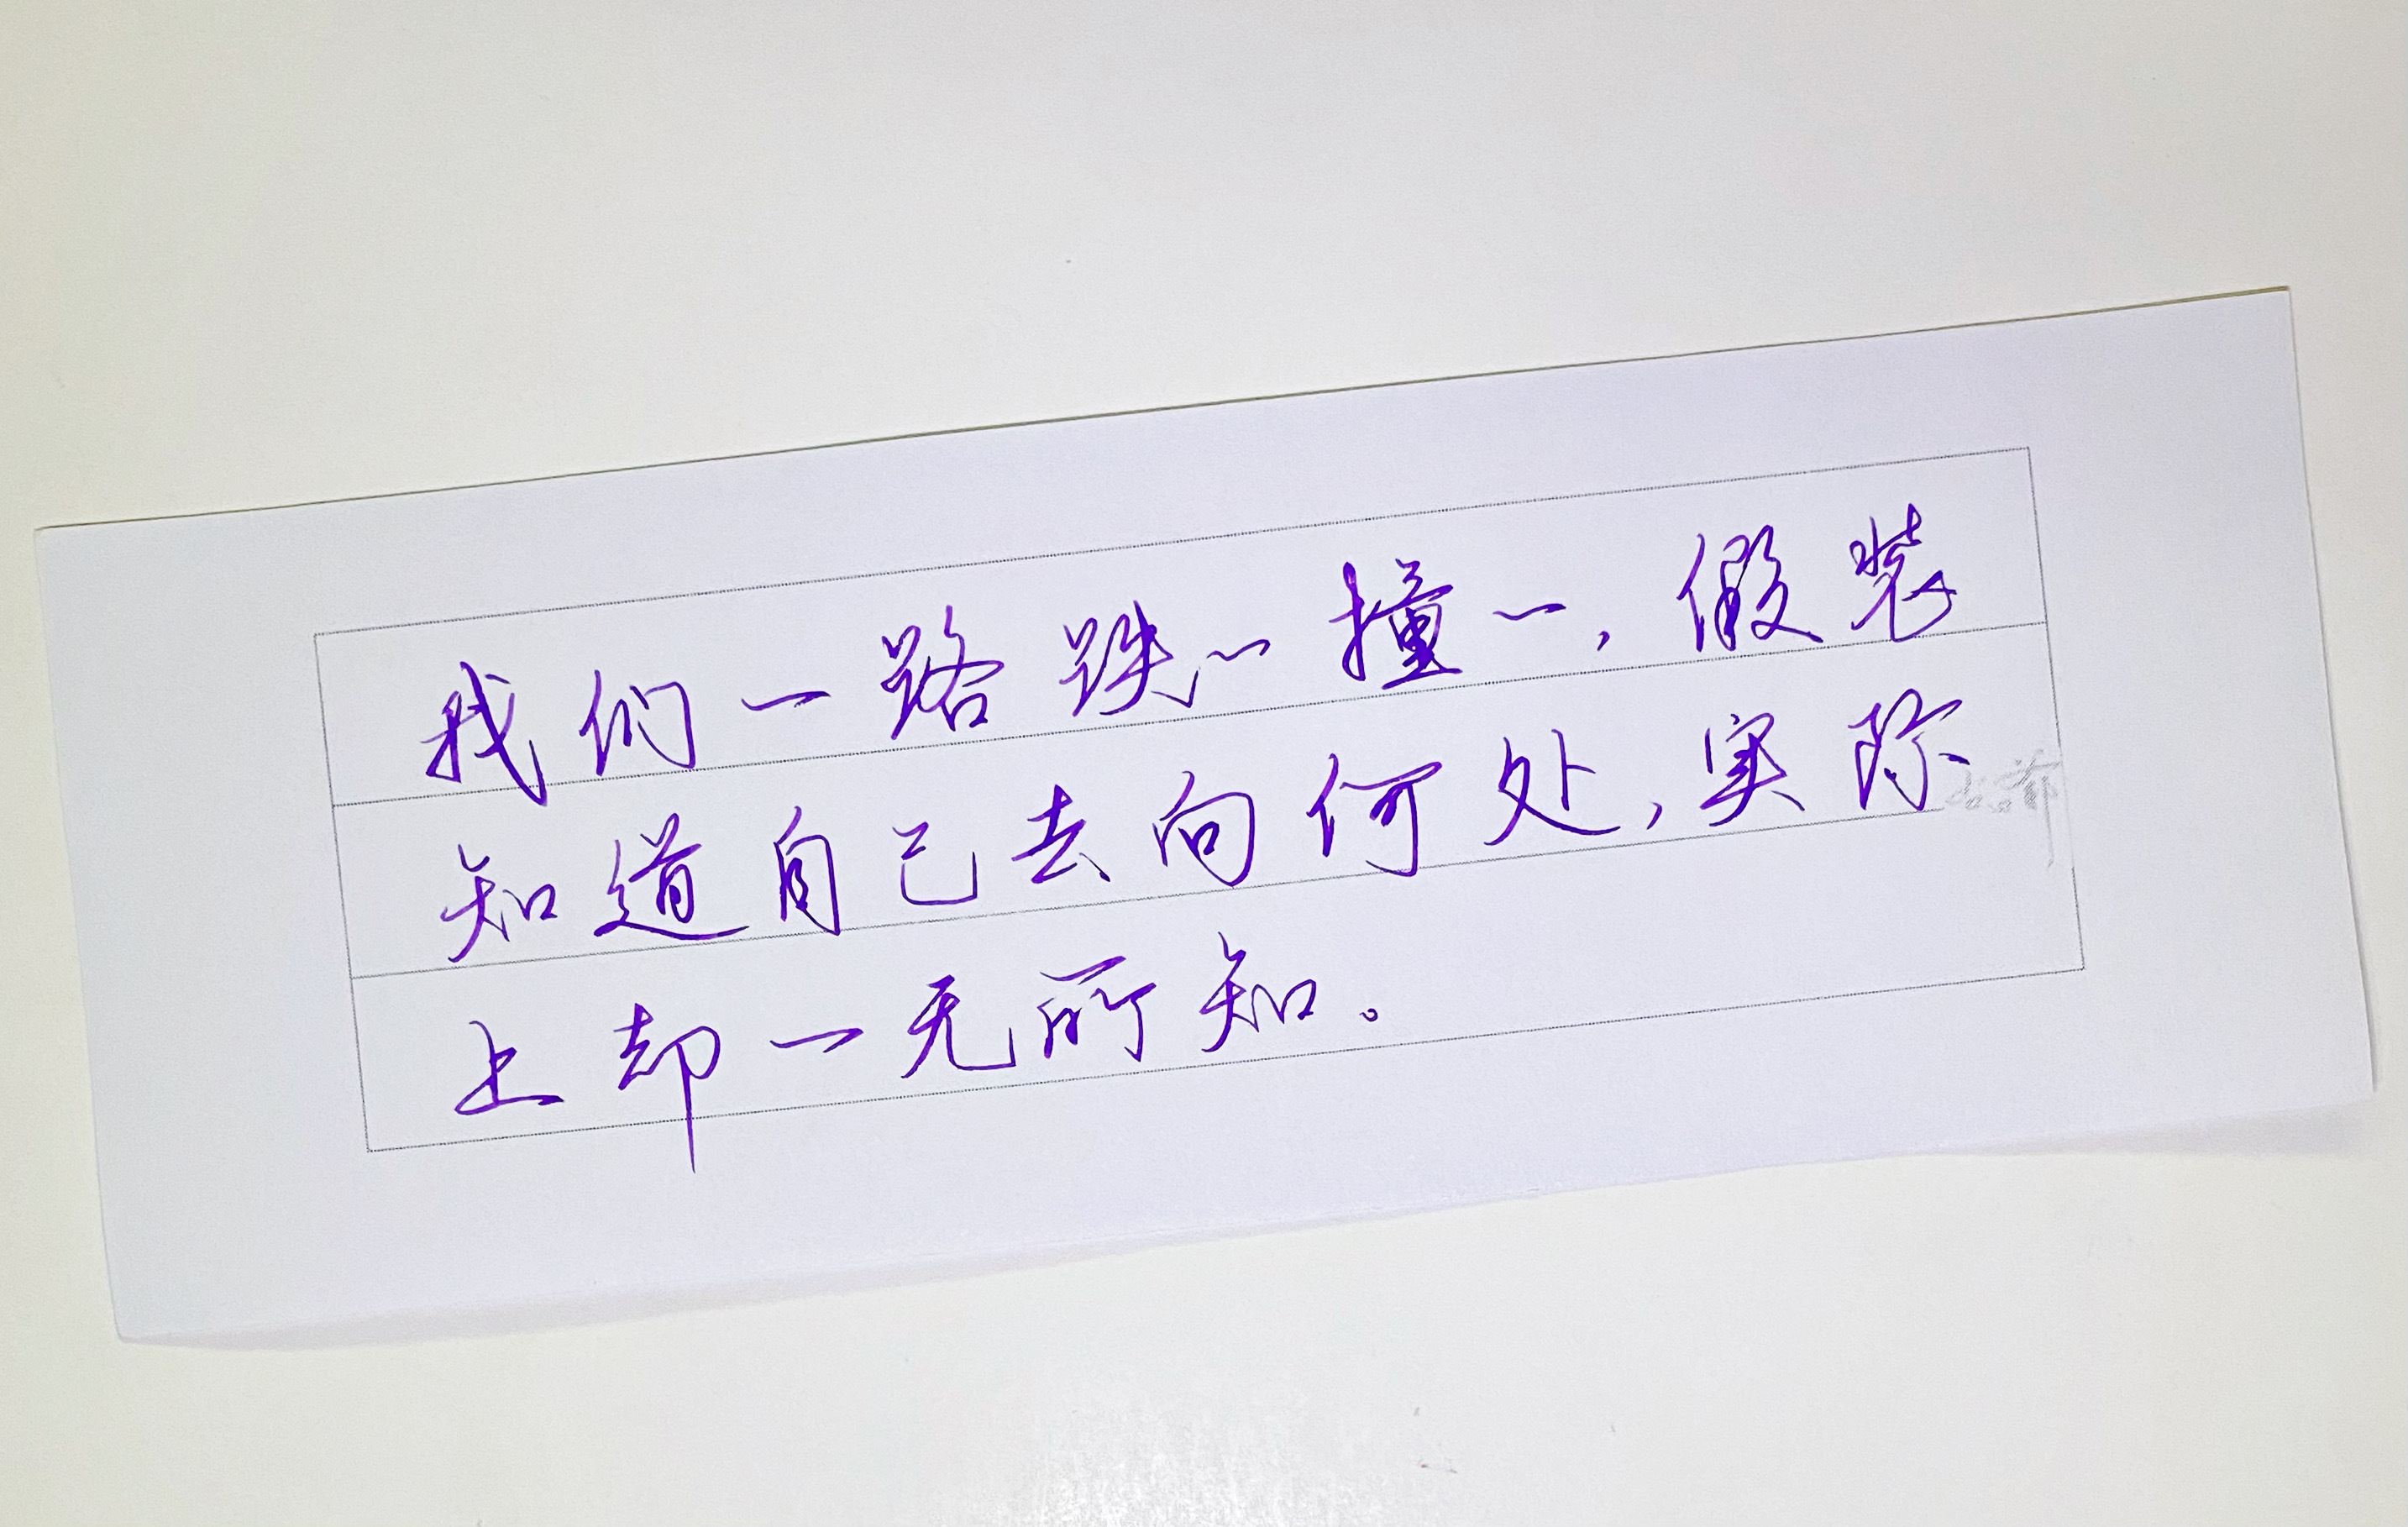 我们一路跌跌撞撞，假装
知道自己去向何处，实际
上却一无所知。